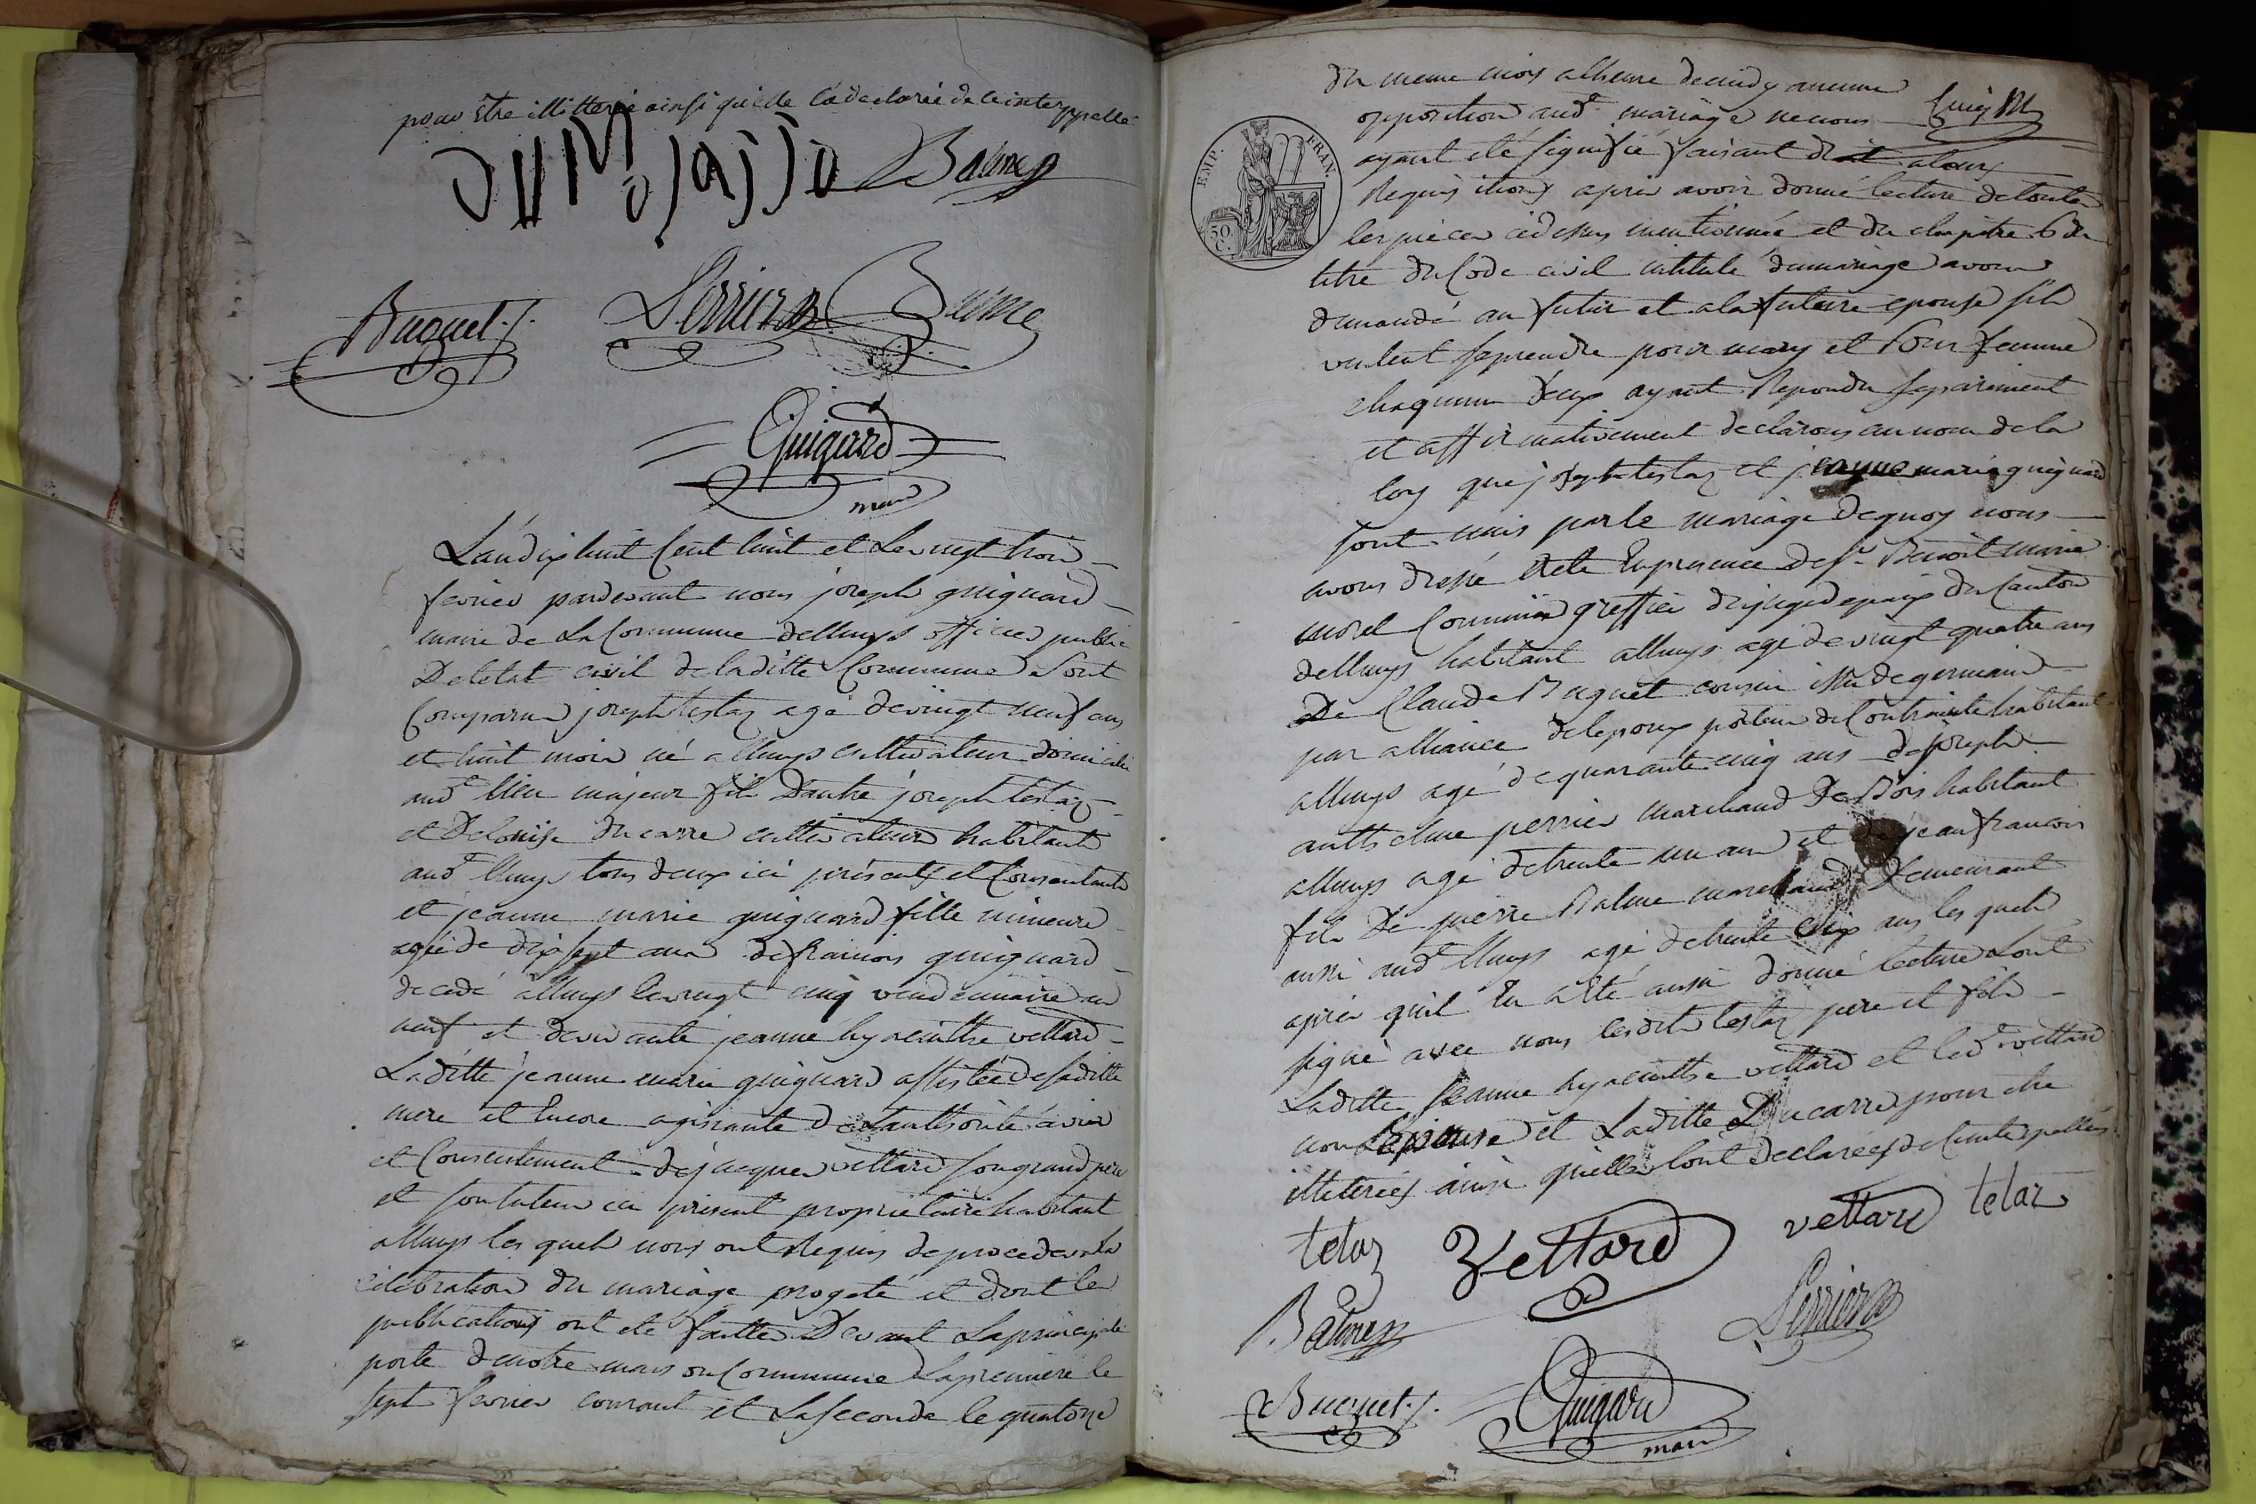 pour être illitteré ainsi quelle la declaré de ce interppellé
Balme
Buquet
Perrier
Balme
Guigard
maire
L'an dix huit Cent huit et Le vingt trois
fevrier pardevant nous joseph guignard
maire de La Commune de Lhuys officier public
De letat civil de laditte Commune Sont
Comparus joseph testaz agé de vingt neuf ans
et huit mois né a Lhuys cultivateur domicilié
aud.t lieu majeur fils D'autre joseph testaz
et De louise ducarre cultivateurs habitants
aud.t Lhuys tous deux ici présents et Consentants
et jeanne marie guignard fille mineure
agée de dix sept ans de francois guignard
decedé a Lhuys le vingt cinq vendemiaire an
neuf et de vivante jeanne hyacinthe vettard
Laditte jeanne marie guignard assistée de saditte
mere et Encore agissante de Lauthorité avis
et Consentement de jacques vettard son grand pere
et son tuteur ici présent propriétaire habitant
a Lhuys les quels nous ont Requis de proceder a la
célébration du mariage progeté et dont les
publications ont été faittes Devant La principale
porte de notre maison Commune La premiere le
sept fevrier courant et La seconde le quatorze
du meme mois a lheure de midy aucune
opposition aud.t mariage ne nous
EMP. FRAN.
50 C.
ayant été signifié faisant droit a leurs
Requisitions apres avoir donné lecture de toutes
les pieces ci dessus mentionnée et du chapitre 6 du
titre du Code civil intitulé du mariage avons
demandé au futur et a la future epouse s'ils
veulent se prendre pour mary et Pour femme
chaqu'un d'eux ayant Repondu séparement
et affirmativement declarons au nom de la
loy que joseph testaz et jeanne marie guignard
sont unis par le mariage de quoy nous
avons dressé acte En présence de s.r Benoit marie
morel Commis greffier du juge de paix du Canton
de Lhuys habitant a Lhuys agé de vingt quatre ans
De Claude Buquet cousin issu de germain
par alliance de lepoux porteur de Contrainte habitant
a Lhuys agé de quarante cinq ans de joseph
anthelme perrier marchand De Bois habitant
a Lhuys agé de trente un ans et de jean francois
fils De pierre Balme marchand Demeurant
aussi aud.t Lhuys agé de trente six ans les quels
apres quil En a été aussi donné lecture L'ont
signé avec nous lesdits testaz pere et fils
Laditte jeanne hyacinthe vettard et led.t vettard
non L'épouse et Laditte Ducarre pour être
illiterées ainsi quelles l'ont declarées de ce interpellées
telaz
Vettard
vettard
telaz
Balme
Perrier
Buquet
Guigard
maire